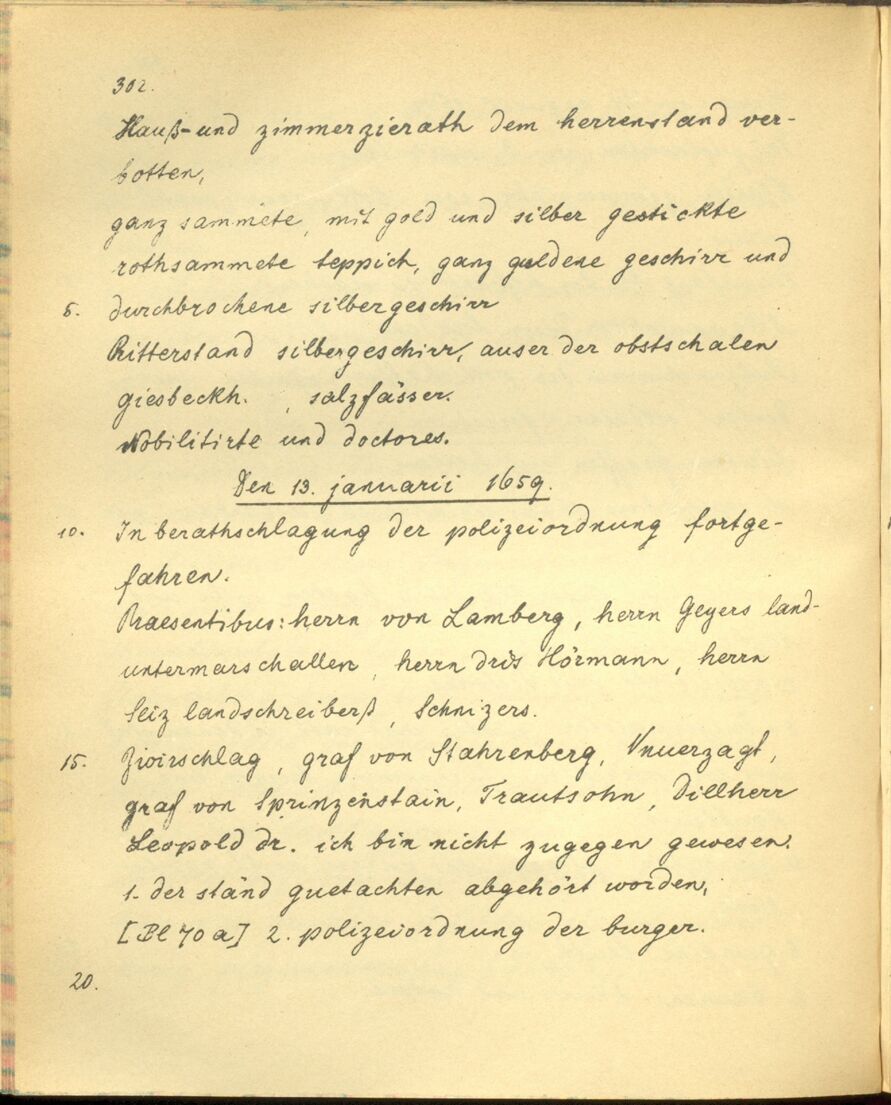 302.
Hauß- und zimmerzierath dem herrenstand ver-
botten,
ganz sammete, mit gold und silber gestickte
rothsammete teppich, ganz guldene geschirr und
5. durchbrochene silbergeschirr
Ritterstand silbergeschirr, auser der obstschalen
giesbeckh. , salzfässer.
Nobilitirte und doctores.
Den 13. januarii 1659.
10. In berathschlagung der polizeiordnung fortge-
fahren.
Praesentibus: herrn von Lamberg, herrn Geyers land-
untermarschallen, herrn dris Hörmann, herrn
Seiz landschreiberß, Schnizers.
15. Zwirschlag, graf von Stahrenberg, Vnuerzagt,
graf von Sprinzenstain, Trautsohn, Dillherr
Leopold Dr. ich bin nicht zugegen gewesen.
1. der ständ guetachten abgehört worden,
[Bl 70 a] 2. polizeiordnung der burger.
20.